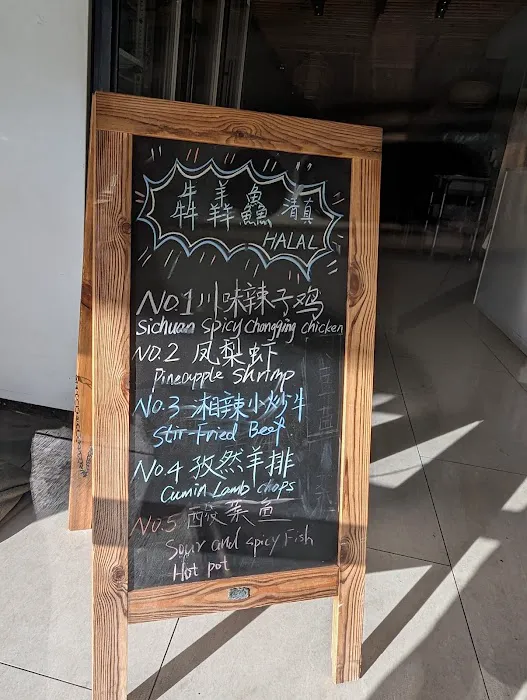 犇羴鱻 清真
HALAL
NO.1 川味辣子鸡
Sichuan Spicy Chongqing chicken
NO.2 凤梨虾
Pineapple Shrimp
No.3 湘辣小炒牛
Stir-Fried Beef
No.4 孜然羊排
Cumin Lamb chops
NO.5 酸菜鱼
Sour and spicy Fish
Hot pot